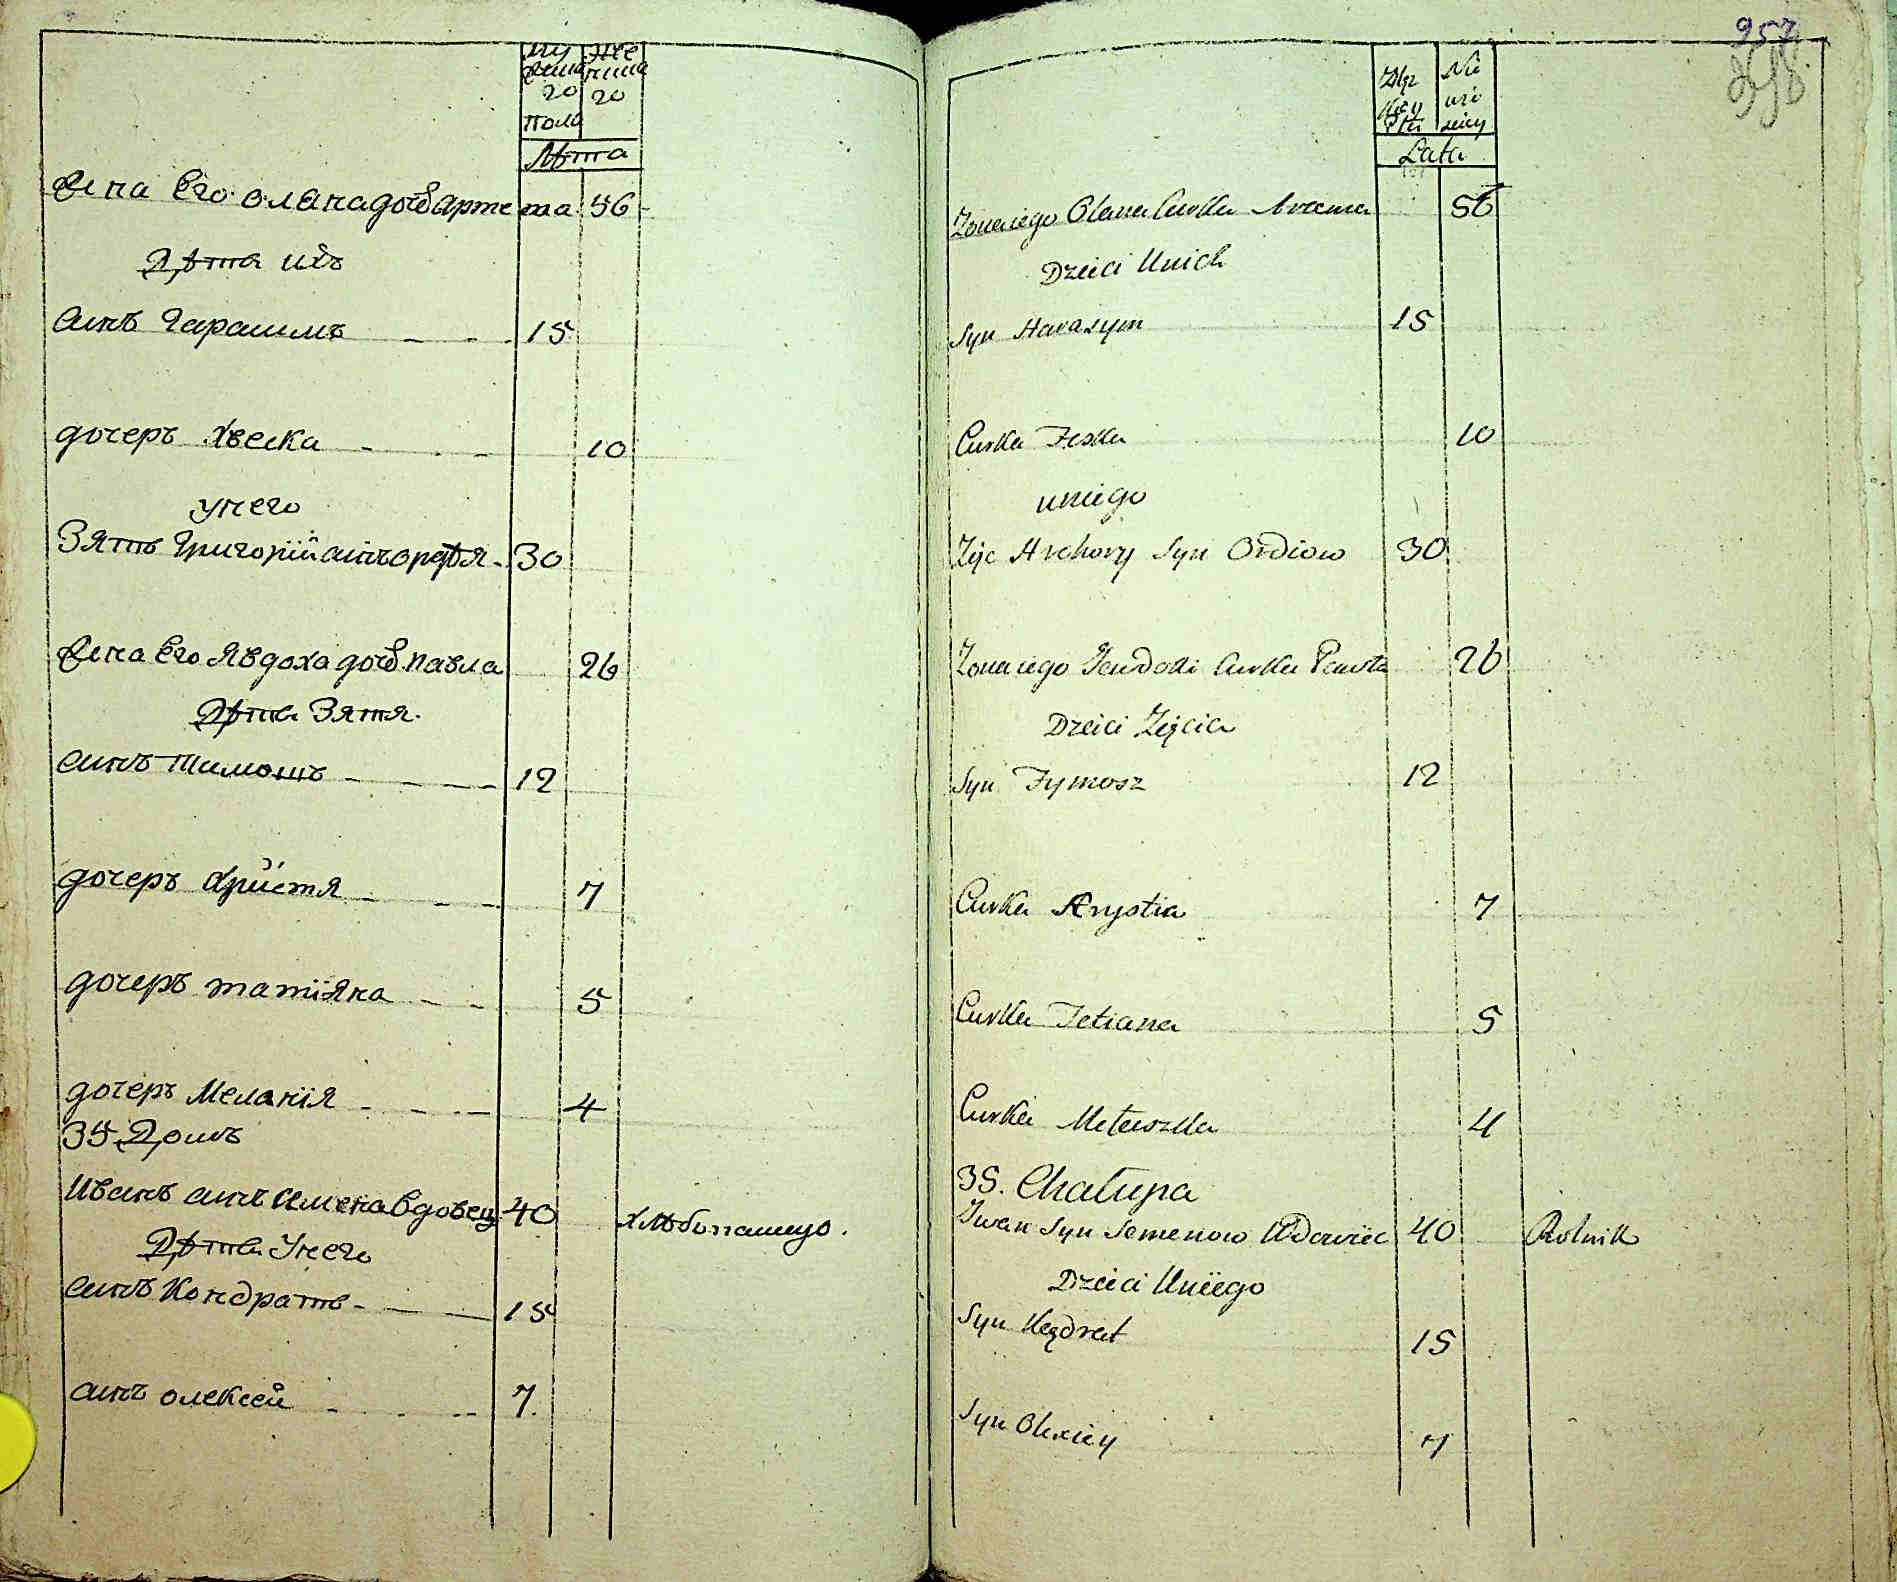 му же
жска нска
го го
пола
Лѣта
Жена Его олена дочь Артема 56
Дѣти ихъ
сынъ Гарасимъ 15
дочерь Хвеска 10
у него
Зять Григорій сынъ 30
Жена Его Явдоха дочь павла 26
Дѣти Зятя.
сынъ Тимошъ 12
дочерь Христя 7
дочерь татіяна 5
дочерь Меланія 4
35 Домъ
Иванъ сынъ Симена вдовец 40 хлѣбопашецъ.
Дѣти У него
сынъ Кондратъ 15
сынъ олексей 7.
957
Lata
Zona iego Olana Curka 56
Dzieci Unich
Syn Harasym 15
Curka Feska 10
uniego
Zięc Hrehory Syn Ordiow 30
Zona iego Jewdoki Curka Pawła 26
Dzieci Zięcia
Syn Tymosz 12
Curka Krystia 7
Curka Tetiana 5
Curka Mełaszka 4
35. Chałupa
Iwan Syn Semenow Wdowiec 40 Rolnik
Dzieci Uniego
Syn Kądrat 15
Syn Olexiey 7